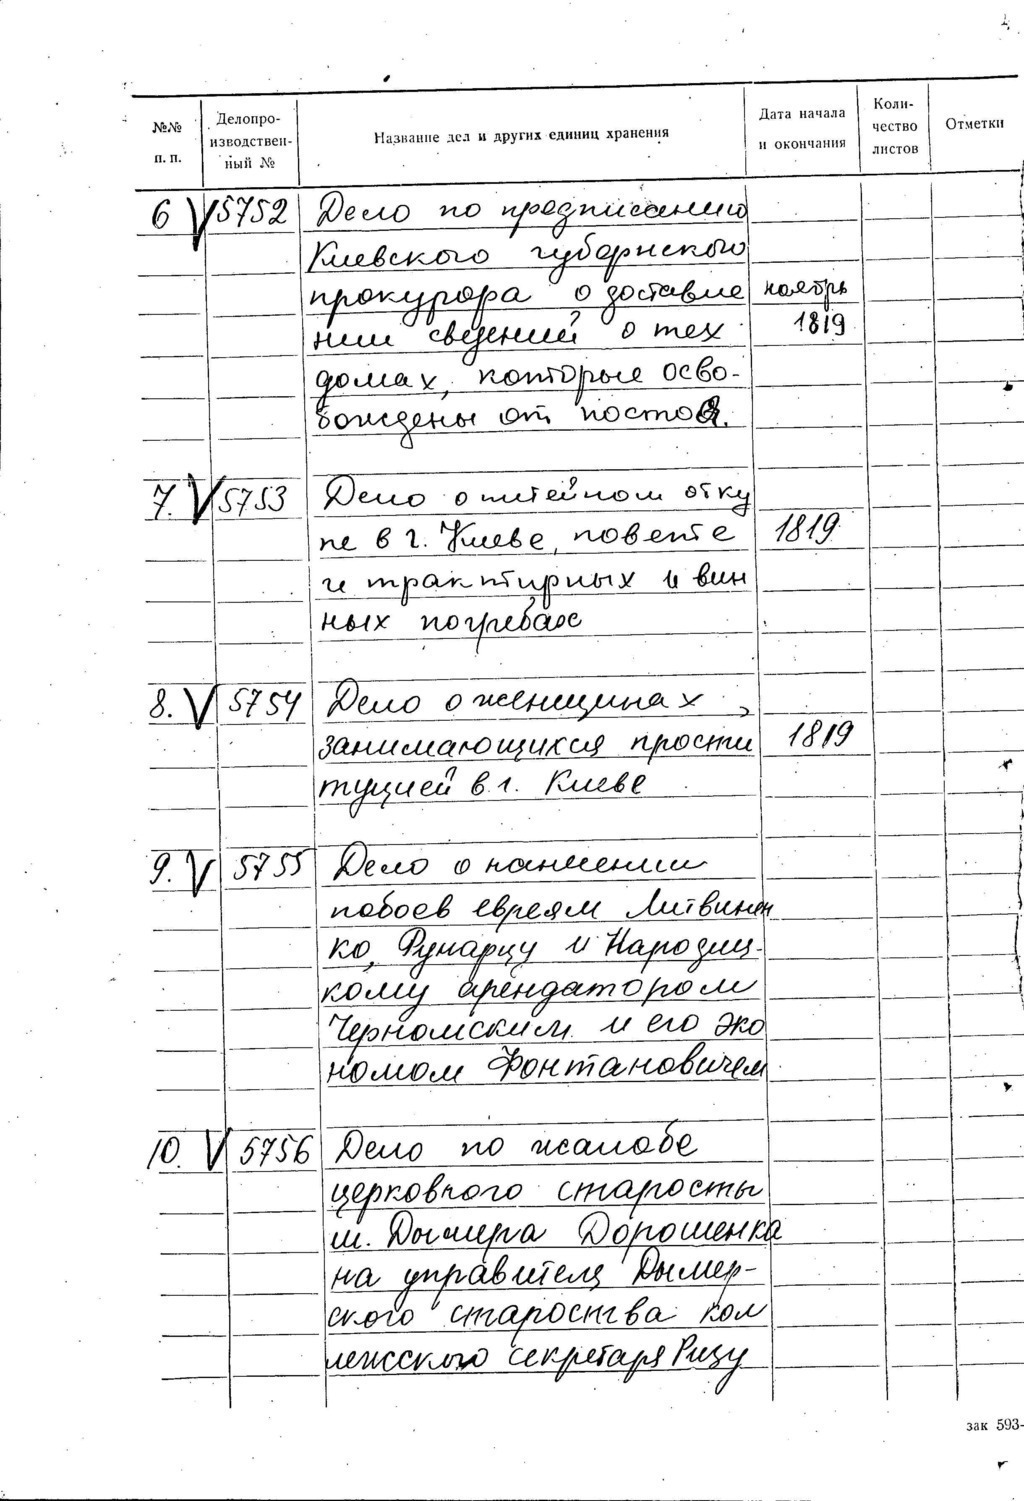 №№ п. п.	Делопро-изводствен-ный №	Название дел и других единиц хранения	Дата начала и окончания	Коли-чество листов	Отметки
6 V 5752 Дело по предписанию
Киевского губернского
прокурора о доставле ноябрь
нии сведений о тех 1819
домах, которые осво-
бождены от постоя.
7. V 5753 Дело о питейном отку
пе в г. Киеве, повете 1819
и трактирных и вин
ных погребах
8. V 5754 Дело о женщинах,
занимающихся прости 1819
туцией в г. Киеве
9. V 5755 Дело о нанесении
побоев евреям Литвинен
ко, Рунарцу и Народиц-
кому арендатором
Черномским и его эко
номом Фонтановичем
10. V 5756 Дело по жалобе
церковного старосты
м. Дымера Дорошенка
на управителя Дымер-
ского староства кол
лежского секретаря Ризу
зак 593-